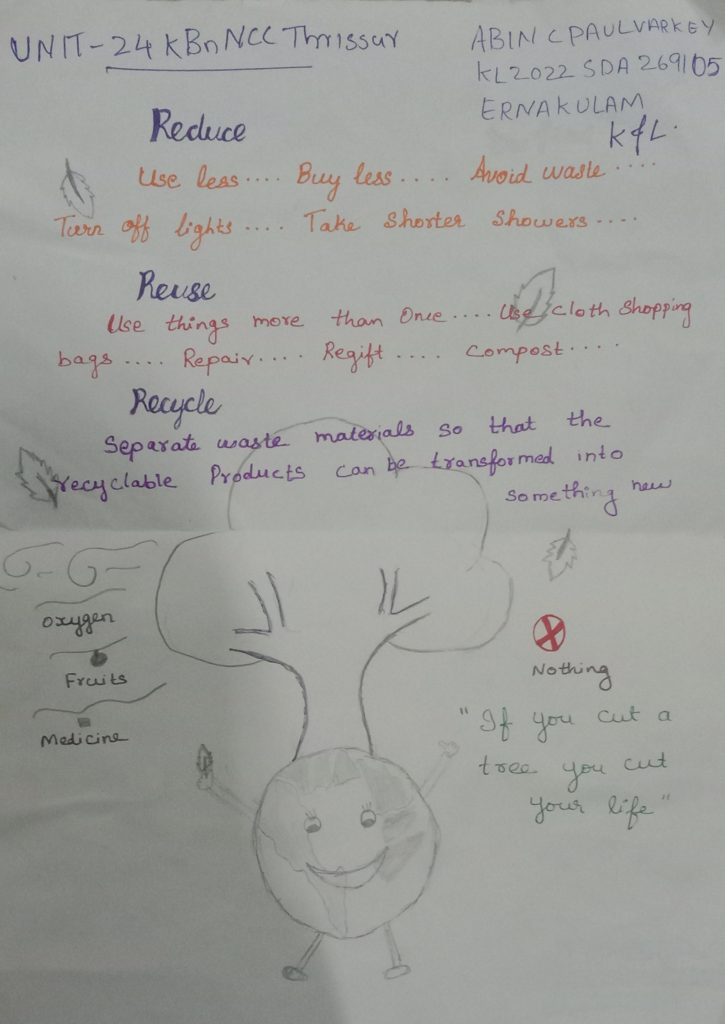 UNIT-24 KBn NCC Thrissur
ABIN C PAULVARKEY
KL2022 SDA 269105
ERNAKULAM
K&L.
Reduce
Use less.... Buy less.... Avoid waste....
Turn off lights.... Take Shorter Showers....
Reuse
Use things more than Once.... Use cloth Shopping
bags.... Repair.... Regift.... Compost....
Recycle
Separate waste materials so that the
recyclable Products can be transformed into
something new
Oxygen
Fruits
Medicine
Nothing
"If you cut a
tree you cut
your life"